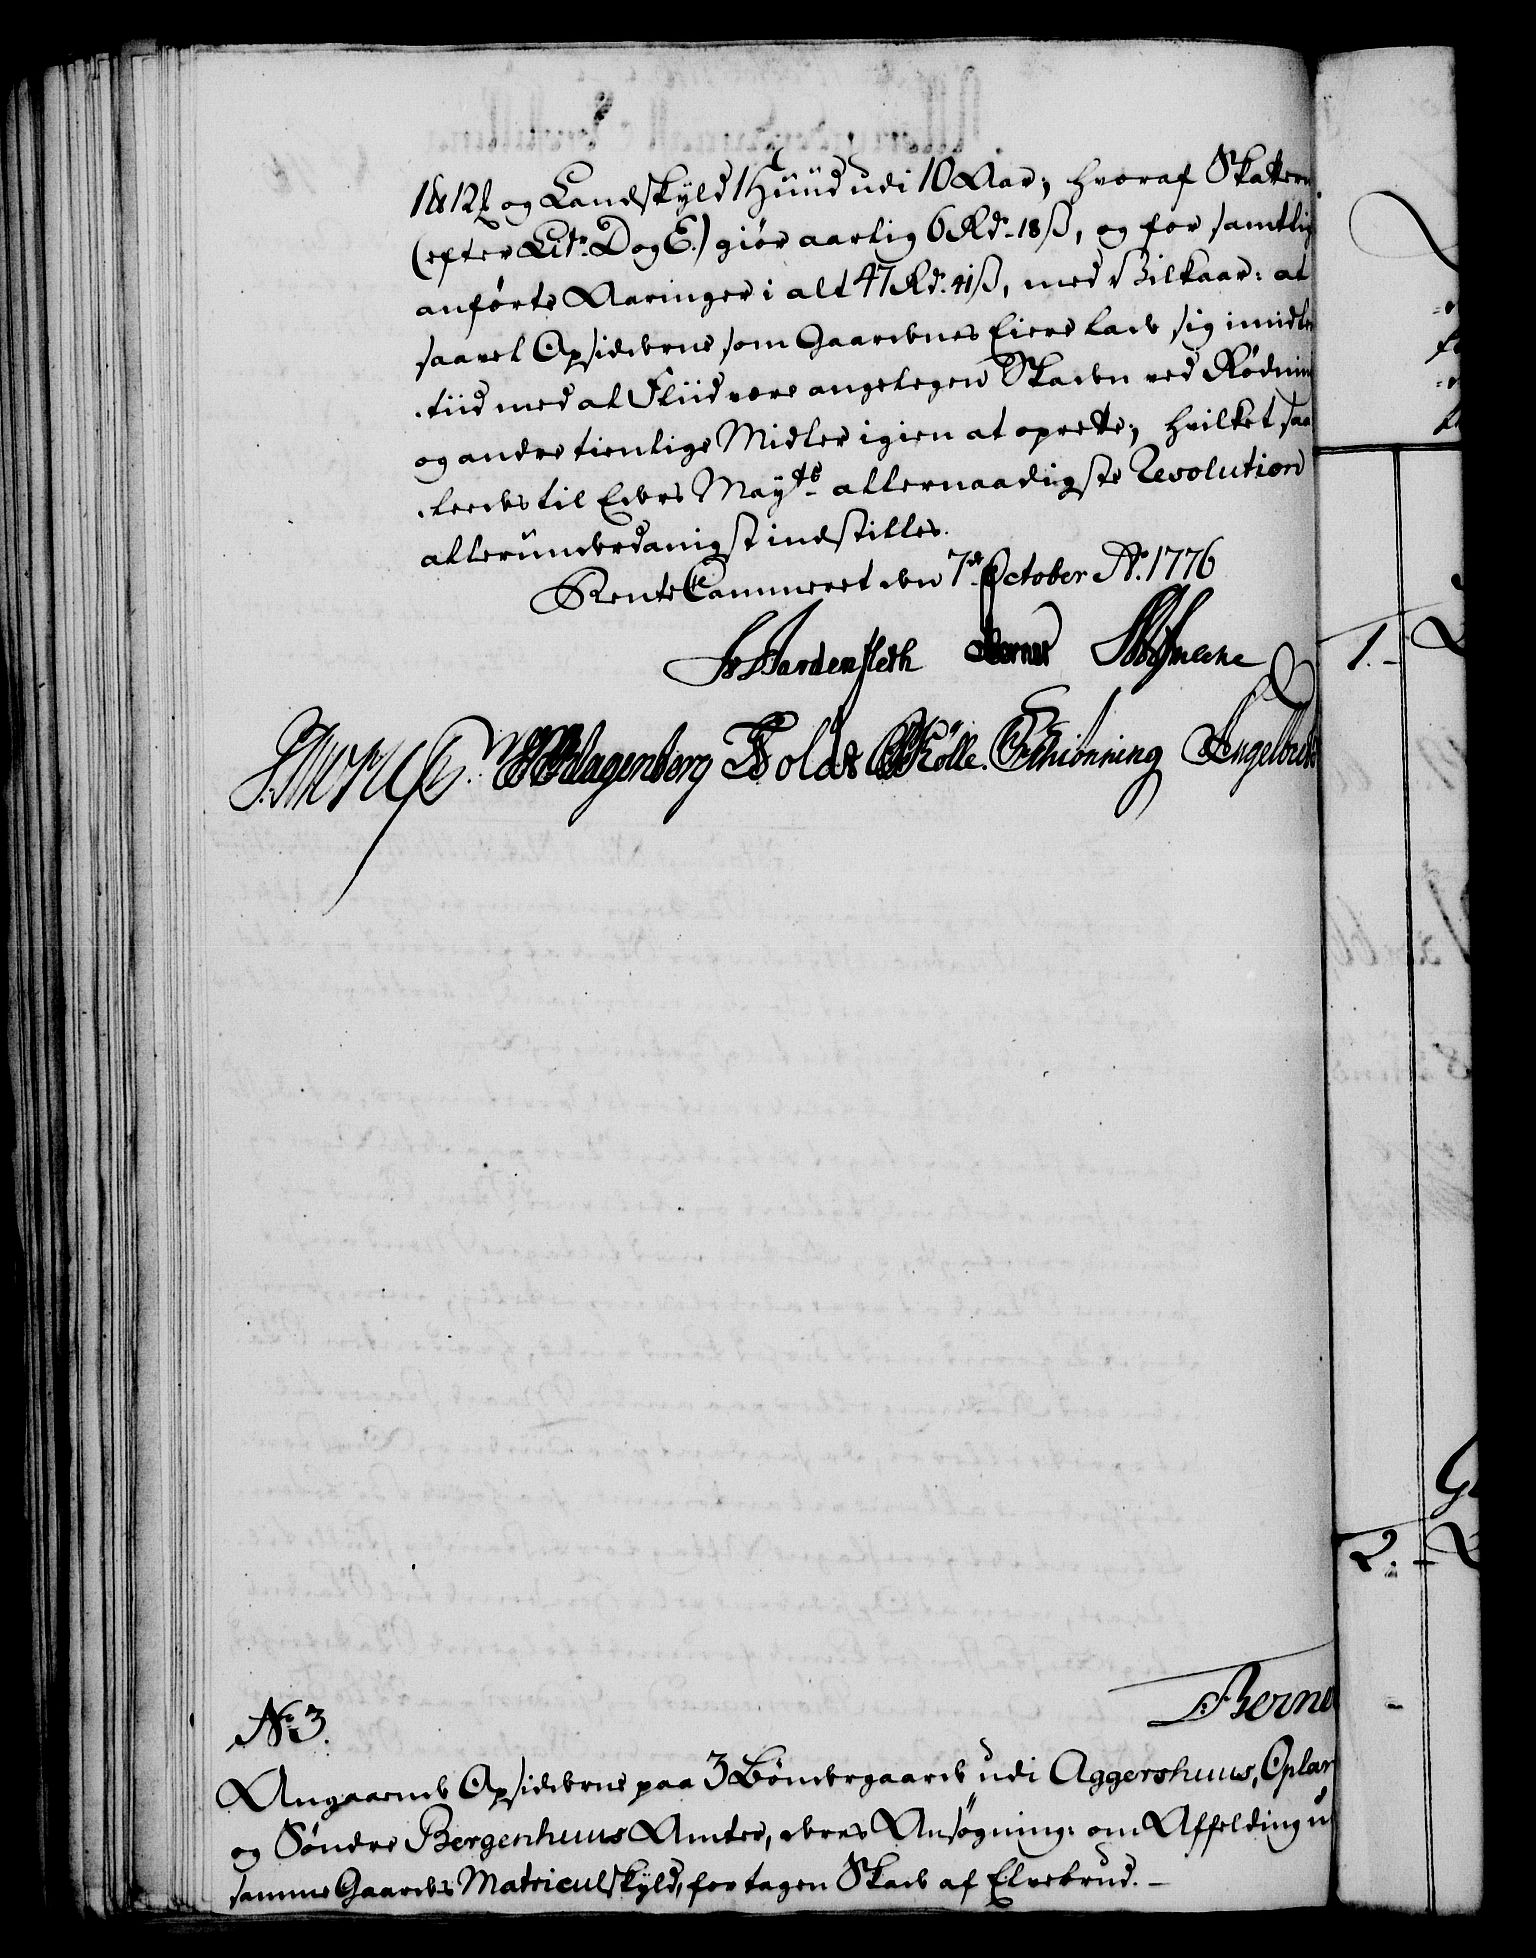 1 12 og Landskyld 1 Huud udi 10 Aar; hvoraf Skatterne
(efter Litr. D og E.) giør aarlig 6 Rdr. 18 ß, og for samtlig
anførte Aaringer i alt 47 Rdr. 41 ß, med Vilkaar: at
saavel Opsidderne som Gaardenes Eiere lade sig imidler
tiid med al Fliid være angelegen Skaden ved Rødning
og andre tienlige Midler igien at oprette; hvilket saa
ledes til Eders Mayts allernaadigste Resolution
allerunderdanigst indstilles.
RenteCammeret den 7de October Ao. 1776
Wardenfleth Berner
Klagenberg Golds Kölle. Schiønning Engelbret
Berne
No 3.
Angaaende Opsidderne paa 3 Bøndergaarde udi Aggershuus, Oplan
og Søndre Bergenhuus Amter, deres Ansøgning: om Affelding u
samme Gaardes Matriculskyld, for tagen Skade af Elvebrud. -
1. -
2. -